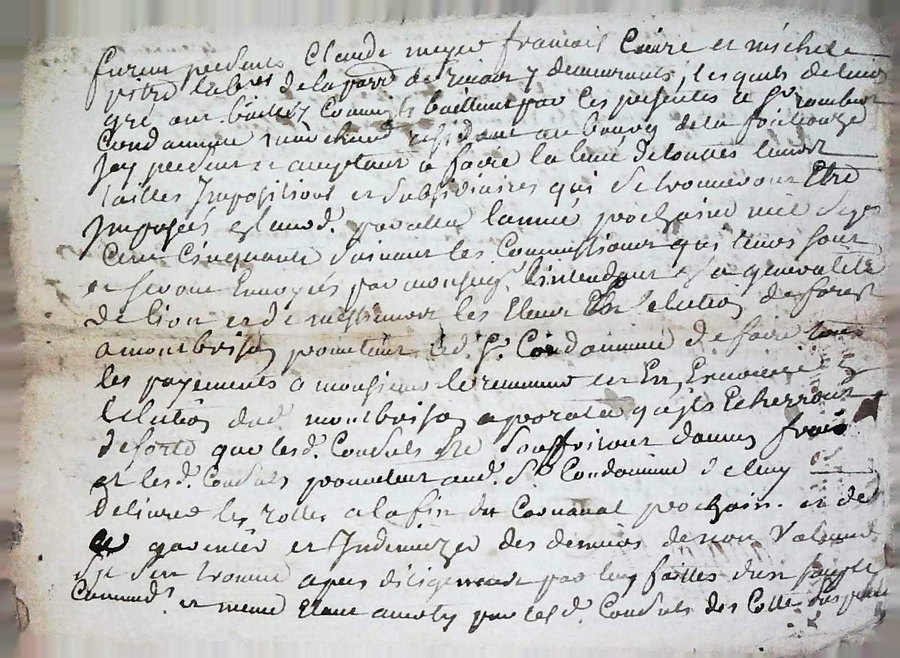 furent presents Claude meyer francois Caire et michel
pitre labrs de la parr de y demeurants, lesquels de leur
gré ont baillez Commis baillent par ces presentes a Sr rambert
Condamine marchand residant au bourg de la foulouze
Icy present et acceptant a faire la levé de touttes leurs
tailles Impositions et subsidiaires qui se trouveront Etre
Imposées aud. parcelle l'année prochaine mil sept
Cent Cinquante suivant les Commissions qui leurs sont
et seront Envoyés par monseigr l'intendant de la generalité
de lion et de messieurs les Eleus En l'election de forest
a montbrison promettant led. Sr. Condamine de faire tous
les payements a monsieur le receveur en En Exercice
lelection dud montbrison a porata quils Echerront
de sorte que lesd. Consuls ne souffriront aucuns frais
et lesd. Consuls promettent aud. Sr Condamine de luy
delivrer les rolles a la fin du Carnaval prochain. et de
garentir et Indemnizer des deniers de non Valeur
Sil s'en trouve apres diligences par luy faittes d'un simple
Command. et meme Etant arretes par lesd. Consuls des Cottes